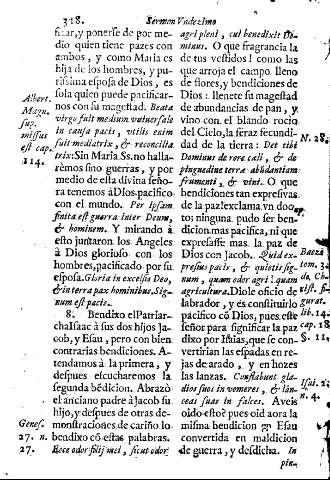 318. Sermon Vndezimo
ficar, y ponerse de por me-
dio quien tiene pazes con
ambos, y como Maria es
hija de los hombres, y pu-
rissima esposa de Dios, es
sola quien puede pacificar-
nos con su magestad. Beata
virgo fuit medium vniuersale
in causa pacis, vtilis enim
fuit mediatrix, & reconcilia
trix: Sin Maria Ss. no halla-
rèmos sino guerras, y por
medio de esta divina seño-
ra tenemos à Dios pacifico
con el mundo. Per Ipsam
finita est guerra inter Deum,
& hominem. Y mirando à
esto juntaron los Angeles
à Dios glorioso con los
hombres, pacificado por su
esposa. Gloria in excelsis Deo,
& in terra pax hominibus. Sig-
num est pacis.
8. Bendixo el Patriar-
cha Isaac à sus dos hijos Ja-
cob, y Esau, pero con bien
contrarias bendiciones. A-
tendamos à la primera, y
despues escucharemos la
segunda bẽdicion. Abrazò
el anciano padre à Jacob su
hijo, y despues de otras de-
monstraciones de cariño lo
bendixo cõ estas palabras.
Ecce odor filij mei, sicut odor
Albert.
Magn.
sup.
missus
est cap.
114.
Genes.
27. n.
27.
agri pleni, cui benedixit Do-
minus. O que fragrancia la
de tus vestidos! como las
que arroja el campo lleno
de flores, y bendiciones de
Dios: llenete su magestad
de abundancias de pan, y
vino con el blando rocio
del Cielo, la feraz fecundi-
dad de la tierra: Det tibi
Dominus de rore cæli, & de
pinguedine terræ abundantiam
frumenti, & vini. O que
bendiciones tan expresivas
de la paz! exclama vn doc-
to; ninguna pudo ser ben-
dicion mas pacifica, ni que
expresasse mas la paz de
Dios con Jacob. Quid ex-
presius pacis, & quietis sig-
num, quam odor agri? quam
agricultura. Diòle oficio de
labrador, y es constituirlo
pacifico cõ Dios, pues este
señor para significar la paz
dixo por Isaias, que se con-
vertirian las espadas en re-
jas de arado, y en hozes
las lanzas. Conflabunt gla-
dios suos in vomeres, & lan-
ceas suas in falces. Aveis
oido esto? pues oid aora la
misma bendicion en Esau
convertida en maldicion
de guerra, y desdicha. In
pin-
N. 28.
Baeza
tom. 3.
de Ch-
rist. fi-
gurat.
lib. 14.
cap. 18.
§. 11.
Isai. 2.
n. 4.